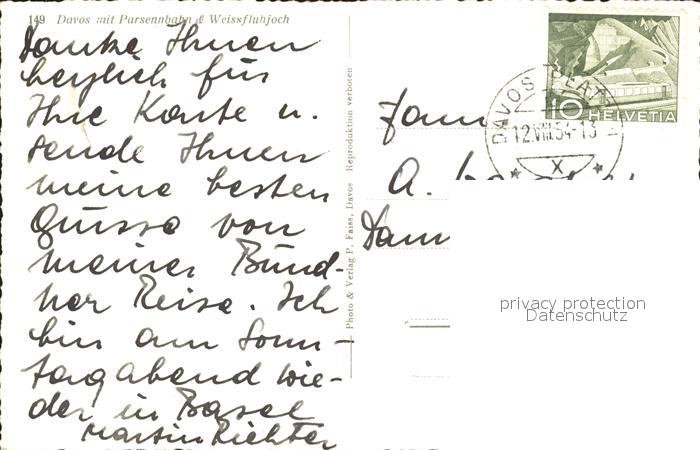 149 Davos mit Parsennbahn & Weissfluhjoch
Danke Ihnen
herzlich für
Ihre Karte u.
sende Ihnen
meine besten
Grüsse von
meiner Bünd-
ner Reise. Ich
bin am Sonn-
tag abend wie-
der in Basel
Martin Richter
Photo & Verlag P. Faiss, Davos Reproduktion verboten
Fam
A.
HELVETIA
10
DAVOS PLATZ
12.VIII.54-13
X
privacy protection
Datenschutz